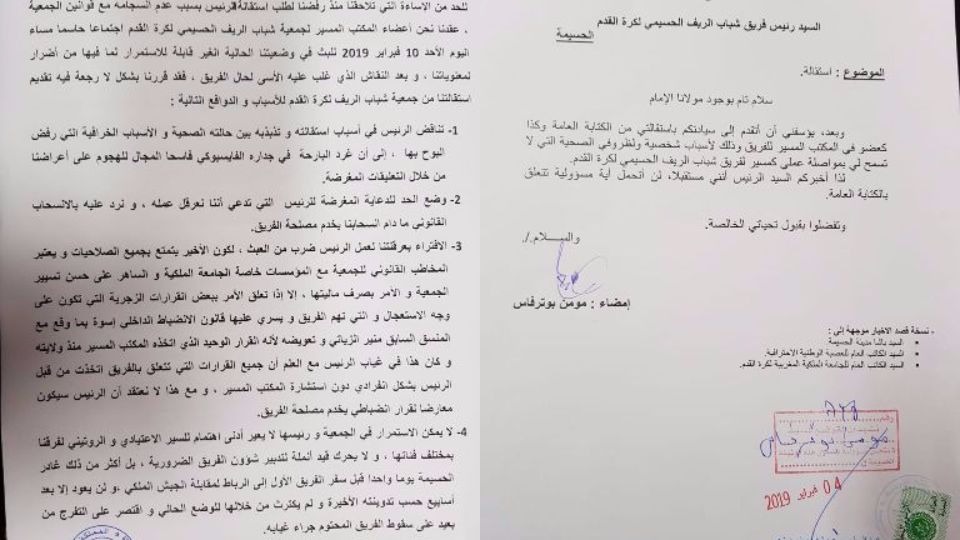 للحد من الاساءة التي تلاحقنا منذ رفضنا لطلب استقالة الرئيس بسبب عدم انسجامه مع قوانين الجمعية
، عقدنا نحن أعضاء المكتب المسير لجمعية شباب الريف الحسيمي لكرة القدم اجتماعا حاسما مساء
اليوم الأحد 10 فبراير 2019 للبث في وضعيتنا الحالية الغير قابلة للاستمرار لما فيها من أضرار
لمعنوياتنا ، و بعد النقاش الذي غلب عليه الأسى لحال الفريق ، فقد قررنا بشكل لا رجعة فيه تقديم
استقالتنا من جمعية شباب الريف لكرة القدم للأسباب و الدوافع التالية :
1- تناقض الرئيس في أسباب استقالته و تذبذبه بين حالته الصحية و الأسباب الخرافية التي رفض
البوح بها ، إلى أن غرد البارحة في جداره الفايسبوكي فاسحا المجال للهجوم على أعراضنا
من خلال التعليقات المغرضة.
2- وضع الحد للدعاية المغرضة للرئيس التي تدعي أننا نعرقل عمله ، و نرد عليه بالانسحاب
القانوني ما دام انسحابنا يخدم مصلحة الفريق.
3- الافتراء بعرقلتنا لعمل الرئيس ضرب من العبث ، لكون الأخير يتمتع بجميع الصلاحيات و يعتبر
المخاطب القانوني للجمعية مع المؤسسات خاصة الجامعة الملكية و الساهر على حسن تسيير
الجمعية و الامر بصرف ماليتها ، إلا إذا تعلق الأمر ببعض القرارات الزجرية التي تكون على
وجه الاستعجال و التي تهم الفريق و يسري عليها قانون الانضباط الداخلي إسوة بما وقع مع
المنسق السابق منير الزياتي و تعويضه لأنه القرار الوحيد الذي اتخذه المكتب المسير منذ ولايته
و كان هذا في غياب الرئيس مع العلم أن جميع القرارات التي تتعلق بالفريق اتخذت من قبل
الرئيس بشكل انفرادي دون استشارة المكتب المسير ، و مع هذا لا نعتقد أن الرئيس سيكون
معارضا لقرار انضباطي يخدم مصلحة الفريق.
4- لا يمكن الاستمرار في الجمعية و رئيسها لا يعير أدنى اهتمام للسير الاعتيادي و الروتيني لفرقنا
بمختلف فئاتها ، و لا يحرك قيد أنملة لتدبير شؤون الفريق الضرورية ، بل أكثر من ذلك غادر
الحسيمة يوما واحدا قبل سفر الفريق الأول إلى الرباط لمقابلة الجيش الملكي ،و لن يعود إلا بعد
أسابيع حسب تدوينته الأخيرة و لم يكترث من خلالها للوضع الحالي و اقتصر على التفرج من
بعيد على سقوط الفريق المحتوم جراء غيابه.
السيد رئيس فريق شباب الريف الحسيمي لكرة القدم
الحسيمة
الموضوع : استقالة.
سلام تام بوجود مولانا الإمام
وبعد، يؤسفني أن أتقدم إلى سيادتكم باستقالتي من الكتابة العامة وكذا
كعضو في المكتب المسير للفريق وذلك لأسباب شخصية ولظروفي الصحية التي لا
تسمح لي بمواصلة عملي كمسير لفريق شباب الريف الحسيمي لكرة القدم.
لذا أخبركم السيد الرئيس أنني مستقبلا، لن أتحمل أية مسؤولية تتعلق
بالكتابة العامة.
وتفضلوا بقبول تحياتي الخالصة.
والســـــلام./.
إمضاء : مومن بوترفاس
- نسخة قصد الاخبار موجهة إلى :
• السيد باشا مدينة الحسيمة.
• السيد الكاتب العام للعصبة الوطنية الاحترافية.
• السيد الكاتب العام للجامعة الملكية المغربية لكرة القدم.
مومن بوترفاس
04 فبراير 2019